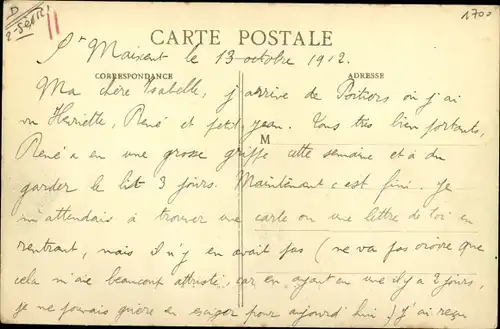 D
2-Sèvres
11
1700
CARTE POSTALE
St Maixent le 13 octobre 1912.
CORRESPONDANCE
ADRESSE
M
Ma chère Isabelle, j'arrive de Poitiers où j'ai
vu Henriette, René et petit Jean. Tous très bien portants,
René a eu une grosse grippe cette semaine et a dû
garder le lit 3 jours. Maintenant c'est fini. Je
m'attendais à trouver une carte ou une lettre de toi en
rentrant, mais il n'y en avait pas (ne va pas croire que
cela m'aie beaucoup attristé, car en ayant eu une il y a 2 jours,
je ne pouvais guère en exiger pour aujourd'hui.) J'ai reçu